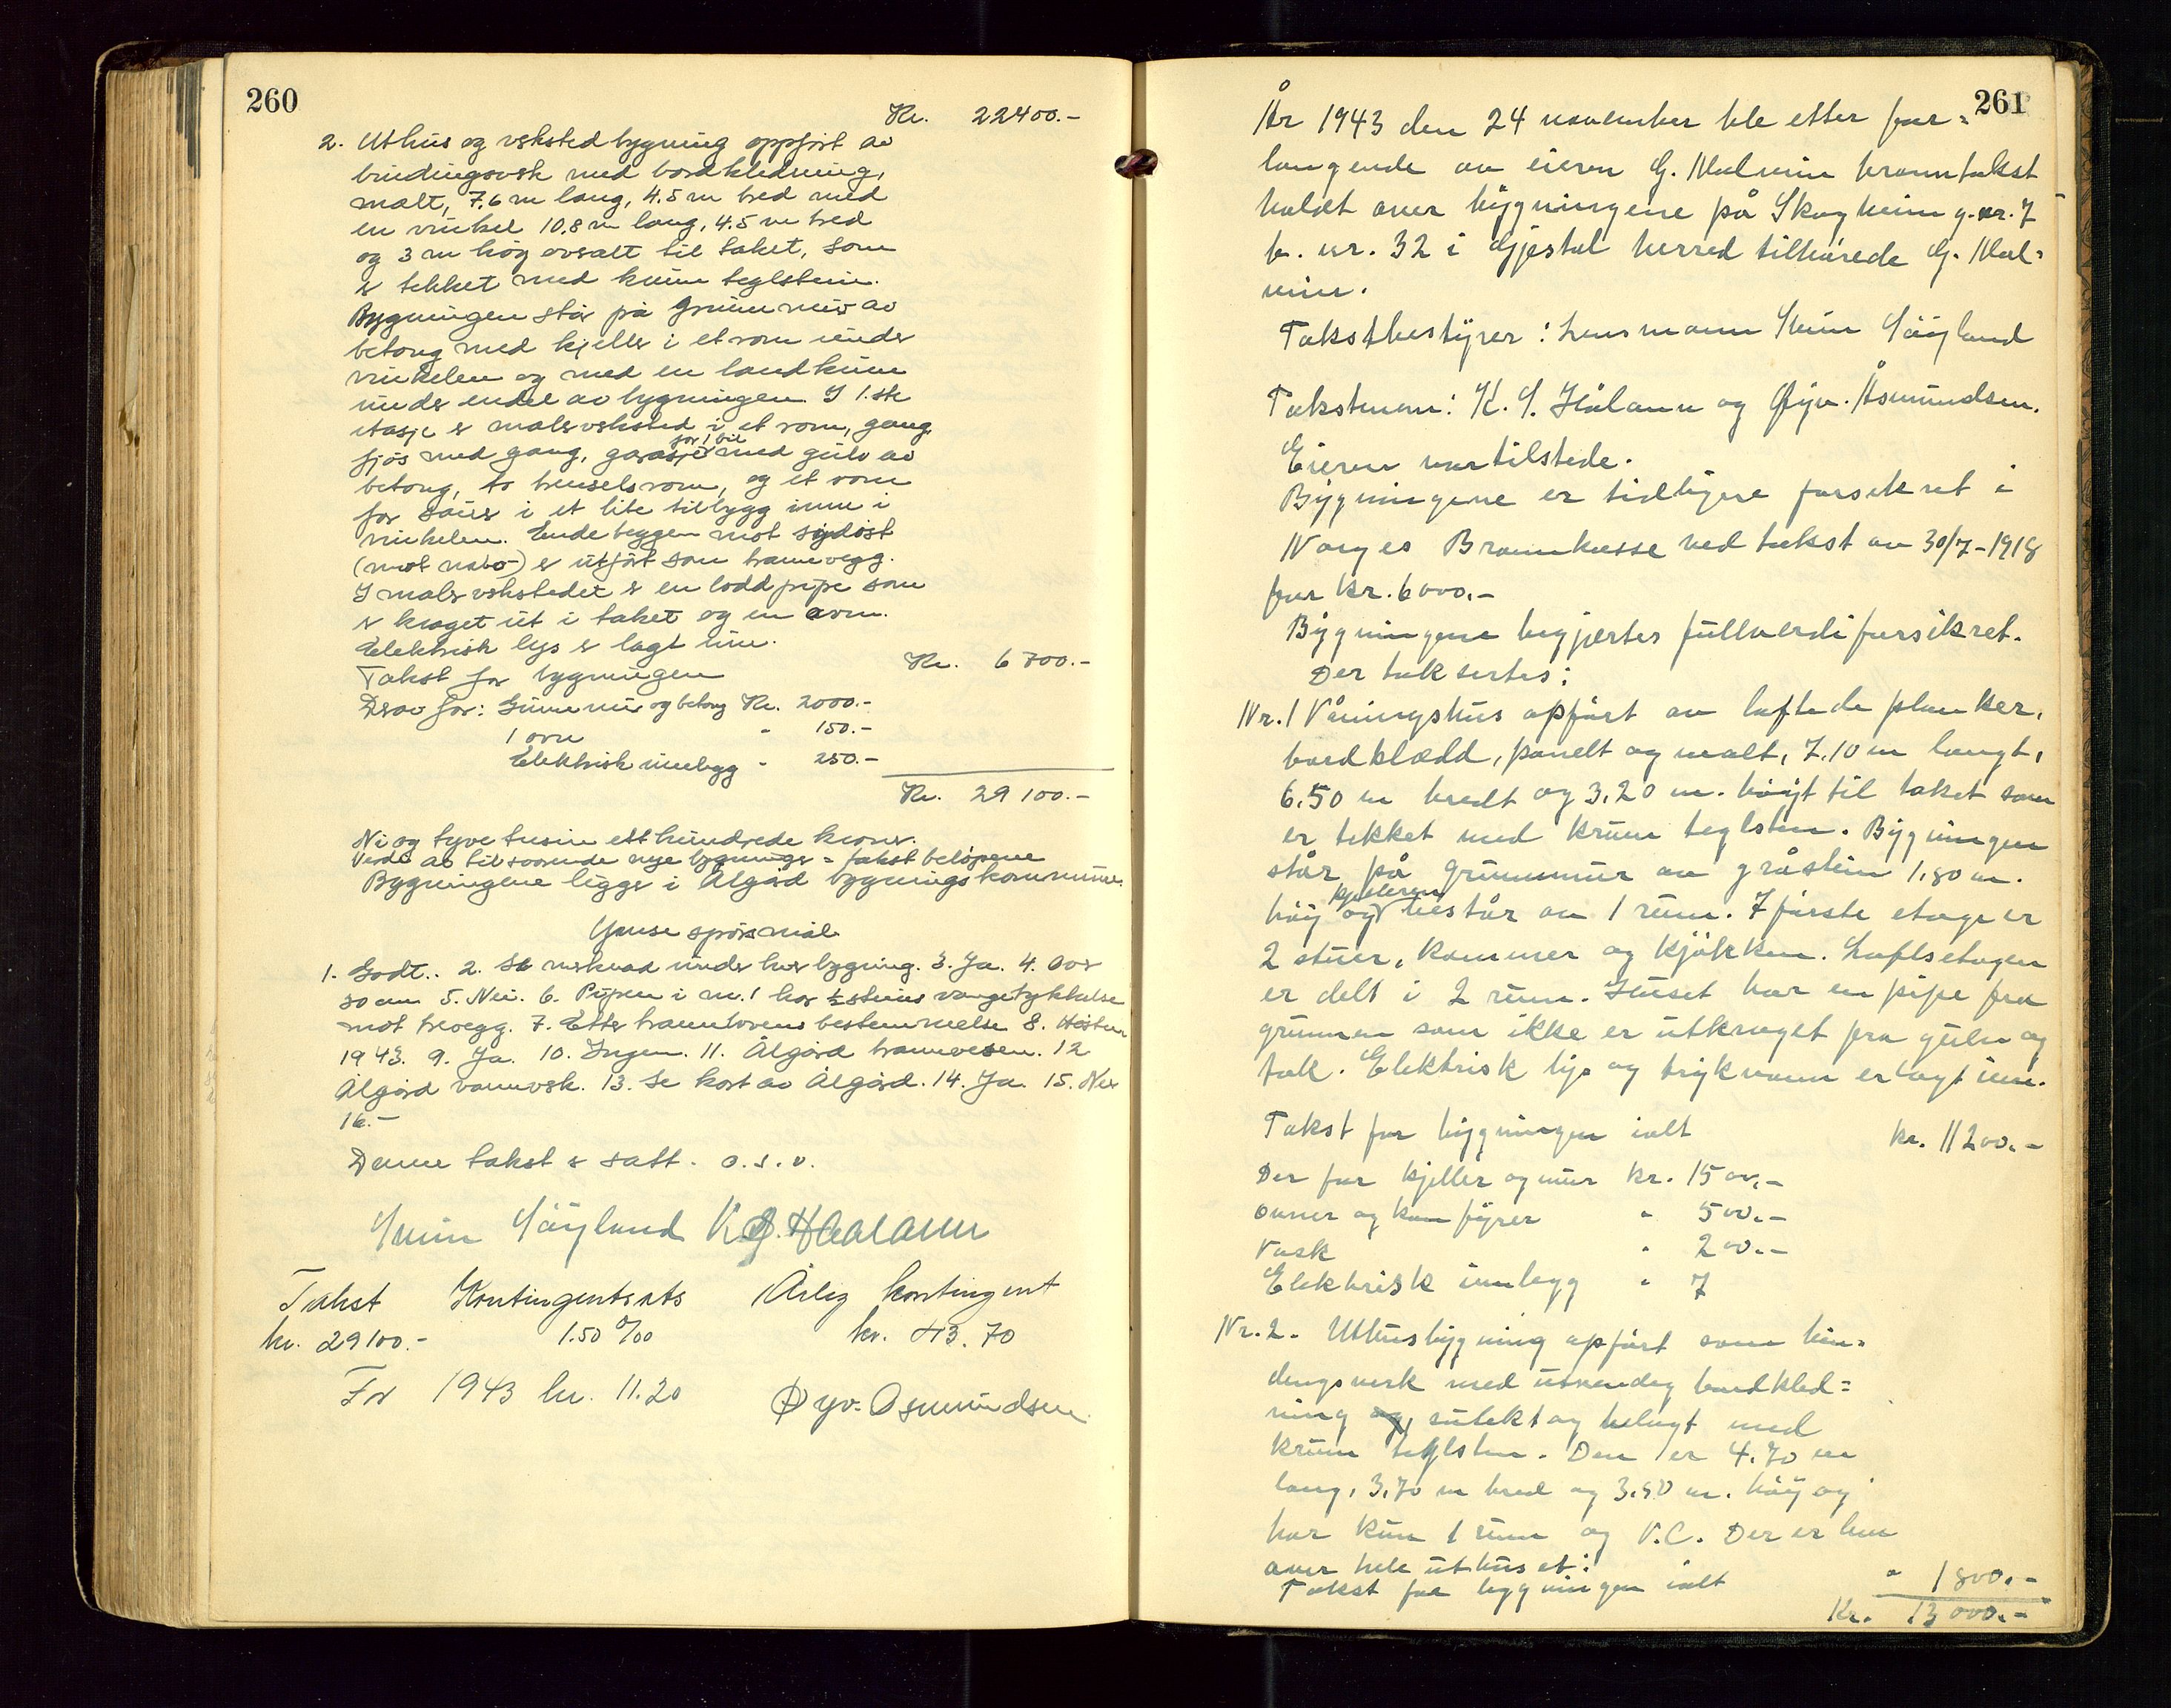 260
Kr. 22400.-
2. Uthus og verkstedbygning oppført av
bindingsverk med bordkledning,
malt, 7.6 m lang, 4.5 m bred med
en vinkel 10.8 m lang, 4.5 m bred
og 3 m høg avsatt til taket, som
er tekket med krum teglstein.
Bygningen står på grunnmur av
betong med kjeller i et rom under
vinkelen og med en landkum
under endel av bygningen. I 1.ste
etasje er malerverksted i et rom, gang,
fjøs med gang, garasje for 1 bil med gulv av
betong, to brenselsrom, og et rom
for sauer i et lite tilbygg inne i
vinkelen. Endeveggen mot sydøst
(mot nabo) er utført som brannvegg.
I malerverkstedet er en loddpipe som
er kraget ut i taket og en ovn.
Elektrisk lys er lagt inn.
Takst for bygningen Kr. 6700.-
Derav for: Grunnmur og betong Kr. 2000.-
1 ovn " 150.-
Elektrisk innlegg " 250.-
Kr. 29100.-
Ni og tyve tusin ett hundrede kroner.
Verdi av tilsvarende nye bygninger = takstbeløpene
Bygningene ligger i Ålgård bygningskommune.
Ymse spørsmål
1. Godt.. 2. Se merknad under hver bygning. 3. Ja. 4. Over
30 cm 5. Nei. 6. Pipen i nr. 1 har ½ steins vangetykkelse
mot trevegg. 7. Etter brannlovens bestemmelse 8. Høsten
1943. 9. Ja. 10. Ingen. 11. Ålgård brannvesen. 12
Ålgård vannverk. 13. Se kart av Ålgård. 14. Ja. 15. Nei
16.-
Denne takst er satt. o.s.v.
K.S. Haalann
Takst Kontingentsats Årlig kontingent
kr. 29100.- 1.50 ‰ kr. 43.70
For 1943 kr. 11.20 Øyv. Asmundsen
261
År 1943 den 24 november ble etter for=
langende av eieren G. Malmin branntakst
holdt over bygningene på Skogheim g.nr. 7
b. nr. 32 i Gjestal herred tilhørede G. Mal=
min.
Takstbestyrer: Lensmann
Takstmenn: K. S. Hålann og Øyv. Åsmundsen.
Eieren var tilstede.
Bygningene er tidligere forsikret i
Norges Brannkasse ved takst av 30/7-1918
for kr. 6000.-
Bygningene begjærtes fullverdiforsikret.
Der taksertes:
Nr. 1 Våningshus opført av laftede planker,
bordklædd, panelt og malt, 7.10 m langt,
6.50 m bredt og 3.20 m. høgt til taket som
er tekket med krum teglsten. Bygningen
står på grunnmur av gråstein 1.80 m.
høg og kjelleren består av 1 rum. I første etage er
2 stuer, kammer og kjøkken. Loftsetagen
er delt i 2 rum. Huset har en pipe fra
grunnen som ikke er utkraget fra gulv og
tak. Elektrisk lys og trykvann er lagt inn.
Takst for bygningen ialt kr. 11200.-
Der for kjeller og mur kr. 1500.-
Ovner og komfyrer " 500.-
Vask " 200.-
Elektrisk innlegg " 7
Nr. 2. Uthusbygning opført som bin=
dingsverk med utvendig bordkled=
ning og, sutekt og belagt med
krum teglsten. Den er 4.70 m
lang, 3.70 m bred og 3.50 m. høg og
har kun 1 rum og V.C. Der er
over hele uthuset:
Takst for bygningen ialt " 1800.-
Kr. 13000.-